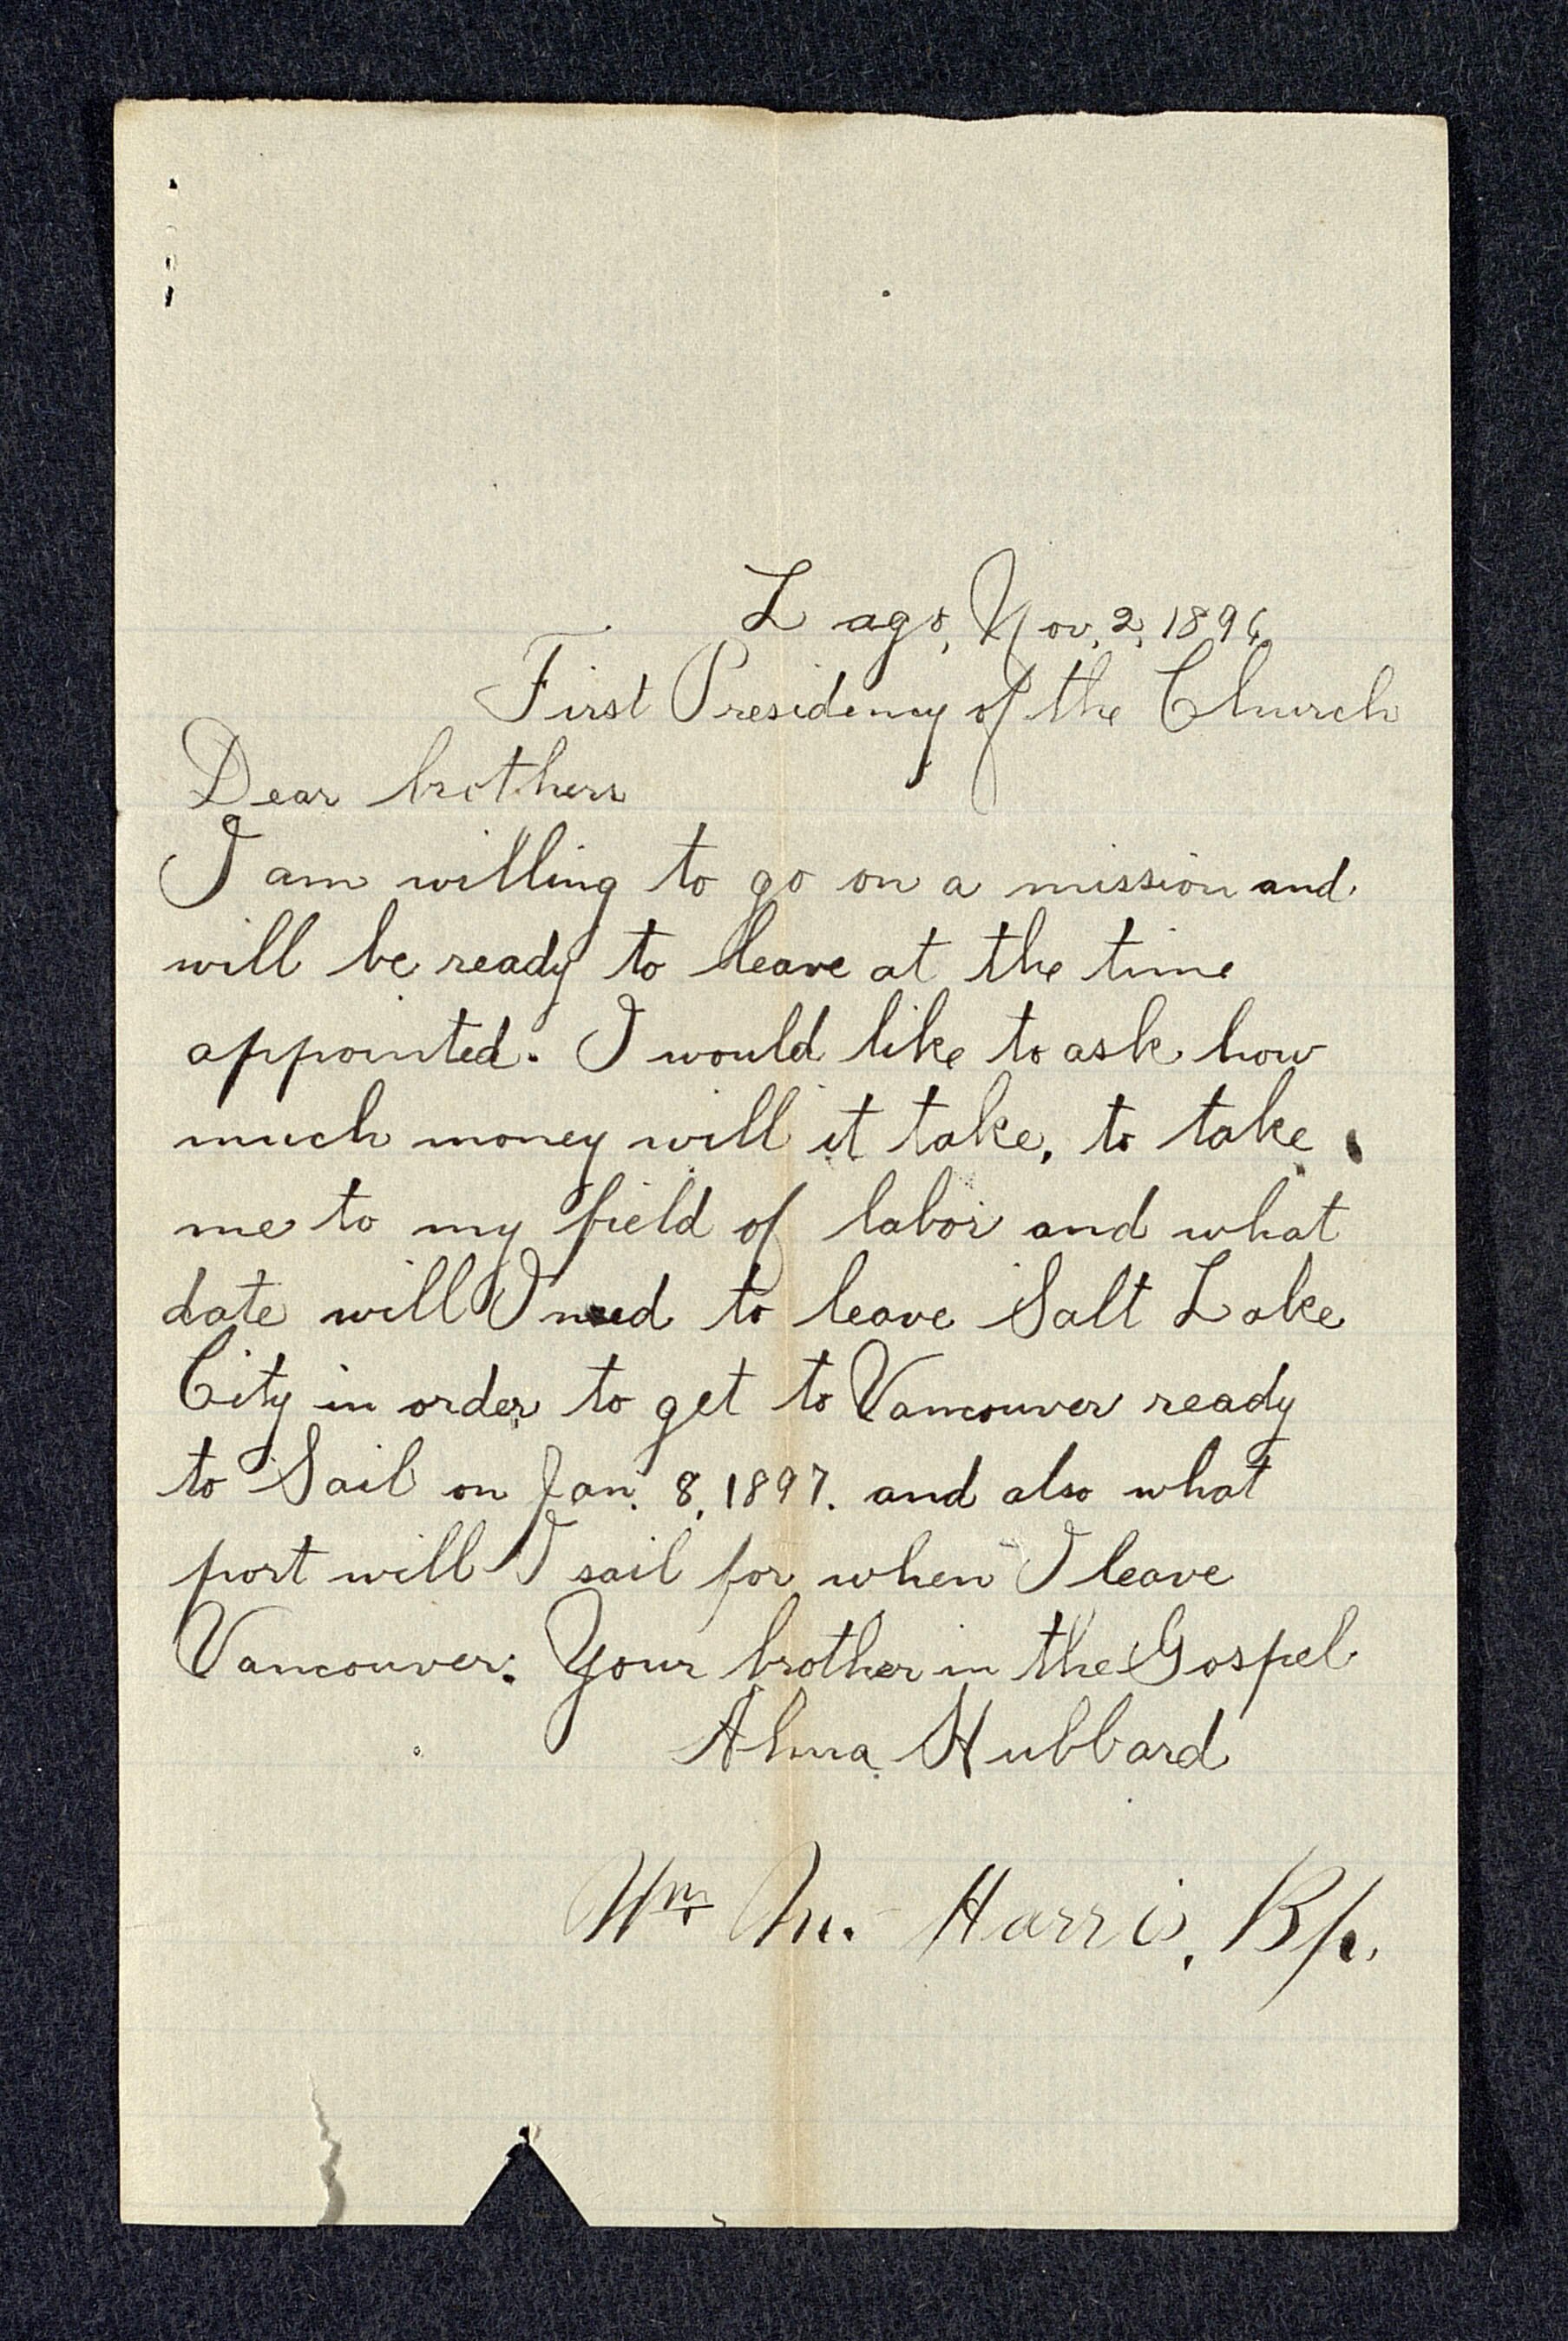 Lago, Nov. 2, 1896
First Presidency of the Church
Dear brothers
I am willing to go on a mission and
will be ready to leave at the time
appointed. I would like to ask how
much money will it take, to take
me to my field of labor and what
date will I need to leave Salt Lake
City in order to get to Vancouver ready
to Sail on Jan. 8, 1897. and also what
port will I sail for when I leave
Vancouver. Your brother in the Gospel
Alma Hubbard
Wm M. Harris, Bp.